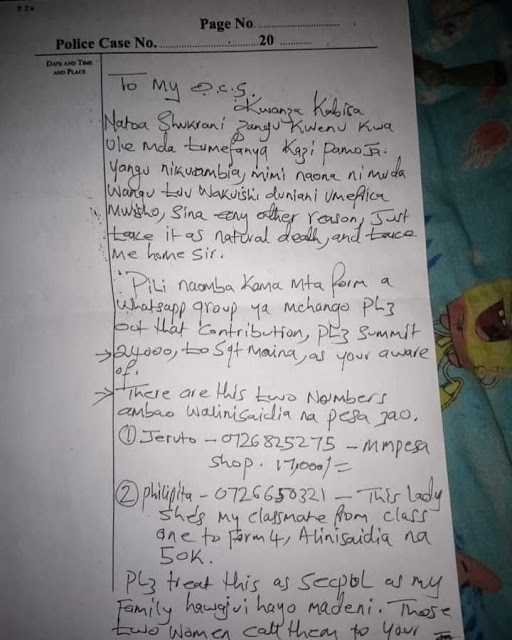 P 2a
Page No.
Police Case No. 20
DATE AND TIME
AND PLACE
To My O.C.S.
Kwanza Kabisa
Natoa Shukrani zangu Kwenu Kwa
Ule mda tumefanya Kazi pamoja.
yangu nikuambia, mimi naona ni muda
wangu tuu wakuishi duniani umefika
Mwisho, Sina any other reason, Just
take it as natural death, and take
me home sir.
Pili naomba Kama mta form a
Whatsapp group ya mchango PLz
out that contribution, PLz summit
24000, to Sgt Maina, as your aware
of.
There are this two Numbers
ambao walinisaidia na pesa zao.
① Jeruto - 0726825275 - MMpesa
Shop. 17,000/=
② philipita - 0726650321 - This lady
She's my classmate from class
one to form 4, Alinisaidia na
50K.
PLz treat this as secpol as my
Family hawajui hayo madeni. Those
two women call them to your